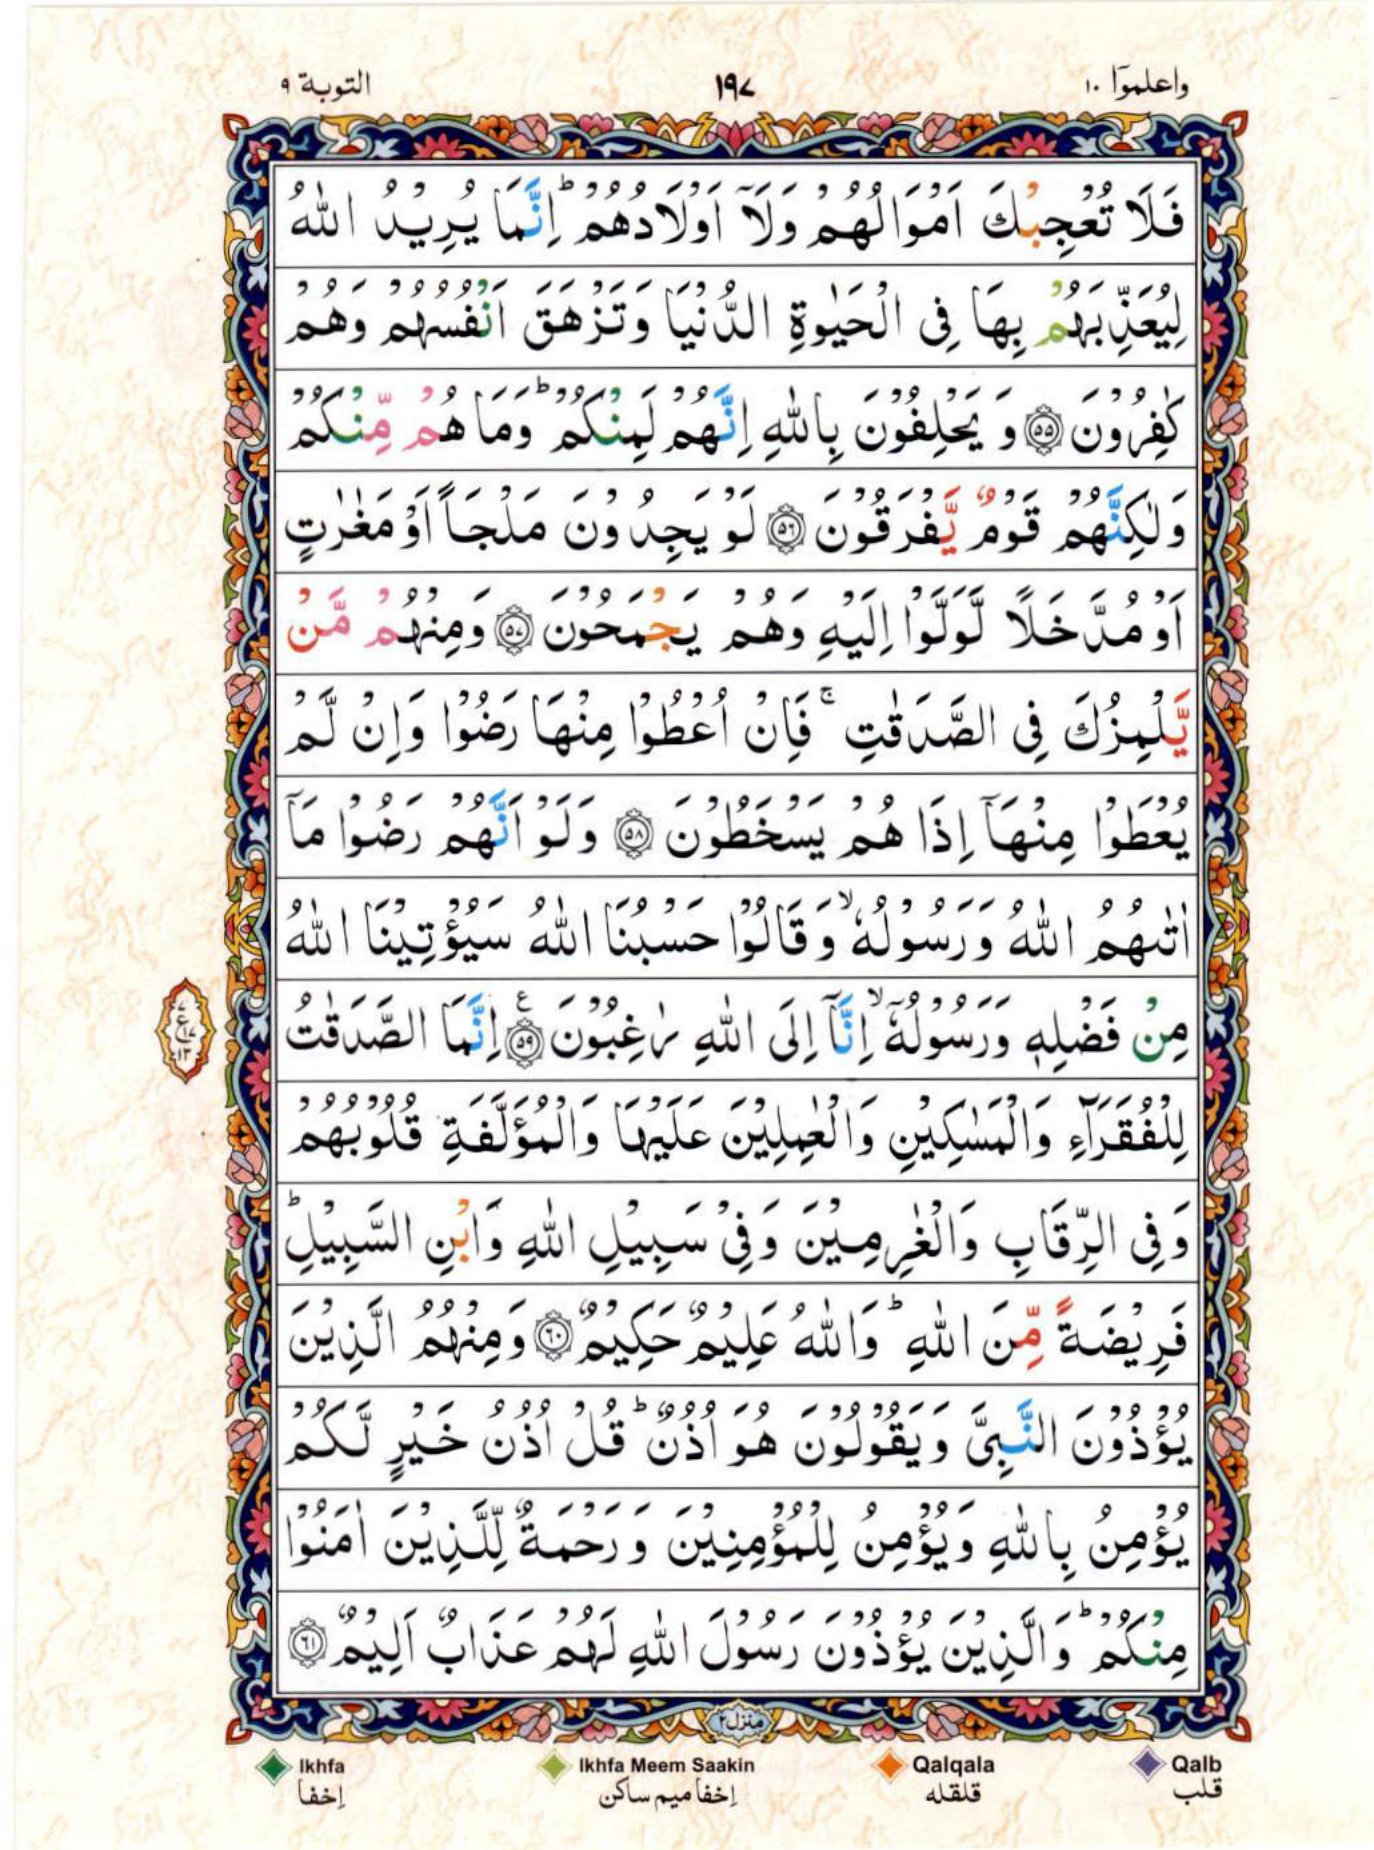 واعلموٓا ١٠
١٩٧
التوبة ٩
فَلَا تُعْجِبْكَ اَمْوَالُهُمْ وَلَآ اَوْلَادُهُمْ ؕ اِنَّمَا يُرِيْدُ اللّٰهُ
لِيُعَذِّبَهُمْ بِهَا فِى الْحَيٰوةِ الدُّنْيَا وَتَزْهَقَ اَنْفُسُهُمْ وَهُمْ
كٰفِرُوْنَ ﴿٥٥﴾ وَ يَحْلِفُوْنَ بِاللّٰهِ اِنَّهُمْ لَمِنْكُمْ ؕ وَمَا هُمْ مِّنْكُمْ
وَلٰكِنَّهُمْ قَوْمٌ يَّفْرَقُوْنَ ﴿٥٦﴾ لَوْ يَجِدُوْنَ مَلْجَاً اَوْ مَغٰرٰتٍ
اَوْ مُدَّخَلًا لَّوَلَّوْا اِلَيْهِ وَهُمْ يَجْمَحُوْنَ ﴿٥٧﴾ وَمِنْهُمْ مَّنْ
يَّلْمِزُكَ فِى الصَّدَقٰتِ ۚ فَاِنْ اُعْطُوْا مِنْهَا رَضُوْا وَاِنْ لَّمْ
يُعْطَوْا مِنْهَآ اِذَا هُمْ يَسْخَطُوْنَ ﴿٥٨﴾ وَلَوْ اَنَّهُمْ رَضُوْا مَآ
اٰتٰىهُمُ اللّٰهُ وَرَسُوْلُهٗ ۙ وَقَالُوْا حَسْبُنَا اللّٰهُ سَيُؤْتِيْنَا اللّٰهُ
مِنْ فَضْلِهٖ وَرَسُوْلُهٗۤ ۙ اِنَّآ اِلَى اللّٰهِ رٰغِبُوْنَ ﴿٥٩﴾ ع اِنَّمَا الصَّدَقٰتُ
٧
ع ١٧
١٣
لِلْفُقَرَآءِ وَالْمَسٰكِيْنِ وَالْعٰمِلِيْنَ عَلَيْهَا وَالْمُؤَلَّفَةِ قُلُوْبُهُمْ
وَفِى الرِّقَابِ وَالْغٰرِمِيْنَ وَفِىْ سَبِيْلِ اللّٰهِ وَابْنِ السَّبِيْلِ ؕ
فَرِيْضَةً مِّنَ اللّٰهِ ؕ وَاللّٰهُ عَلِيْمٌ حَكِيْمٌ ﴿٦٠﴾ وَمِنْهُمُ الَّذِيْنَ
يُؤْذُوْنَ النَّبِىَّ وَيَقُوْلُوْنَ هُوَ اُذُنٌ ؕ قُلْ اُذُنُ خَيْرٍ لَّكُمْ
يُؤْمِنُ بِاللّٰهِ وَيُؤْمِنُ لِلْمُؤْمِنِيْنَ وَرَحْمَةٌ لِّلَّذِيْنَ اٰمَنُوْا
مِنْكُمْ ؕ وَالَّذِيْنَ يُؤْذُوْنَ رَسُوْلَ اللّٰهِ لَهُمْ عَذَابٌ اَلِيْمٌ ﴿٦١﴾
منزل ٢
Ikhfa
Ikhfa Meem Saakin
Qalqala
Qalb
إخفا
إخفا ميم ساكن
قلقله
قلب